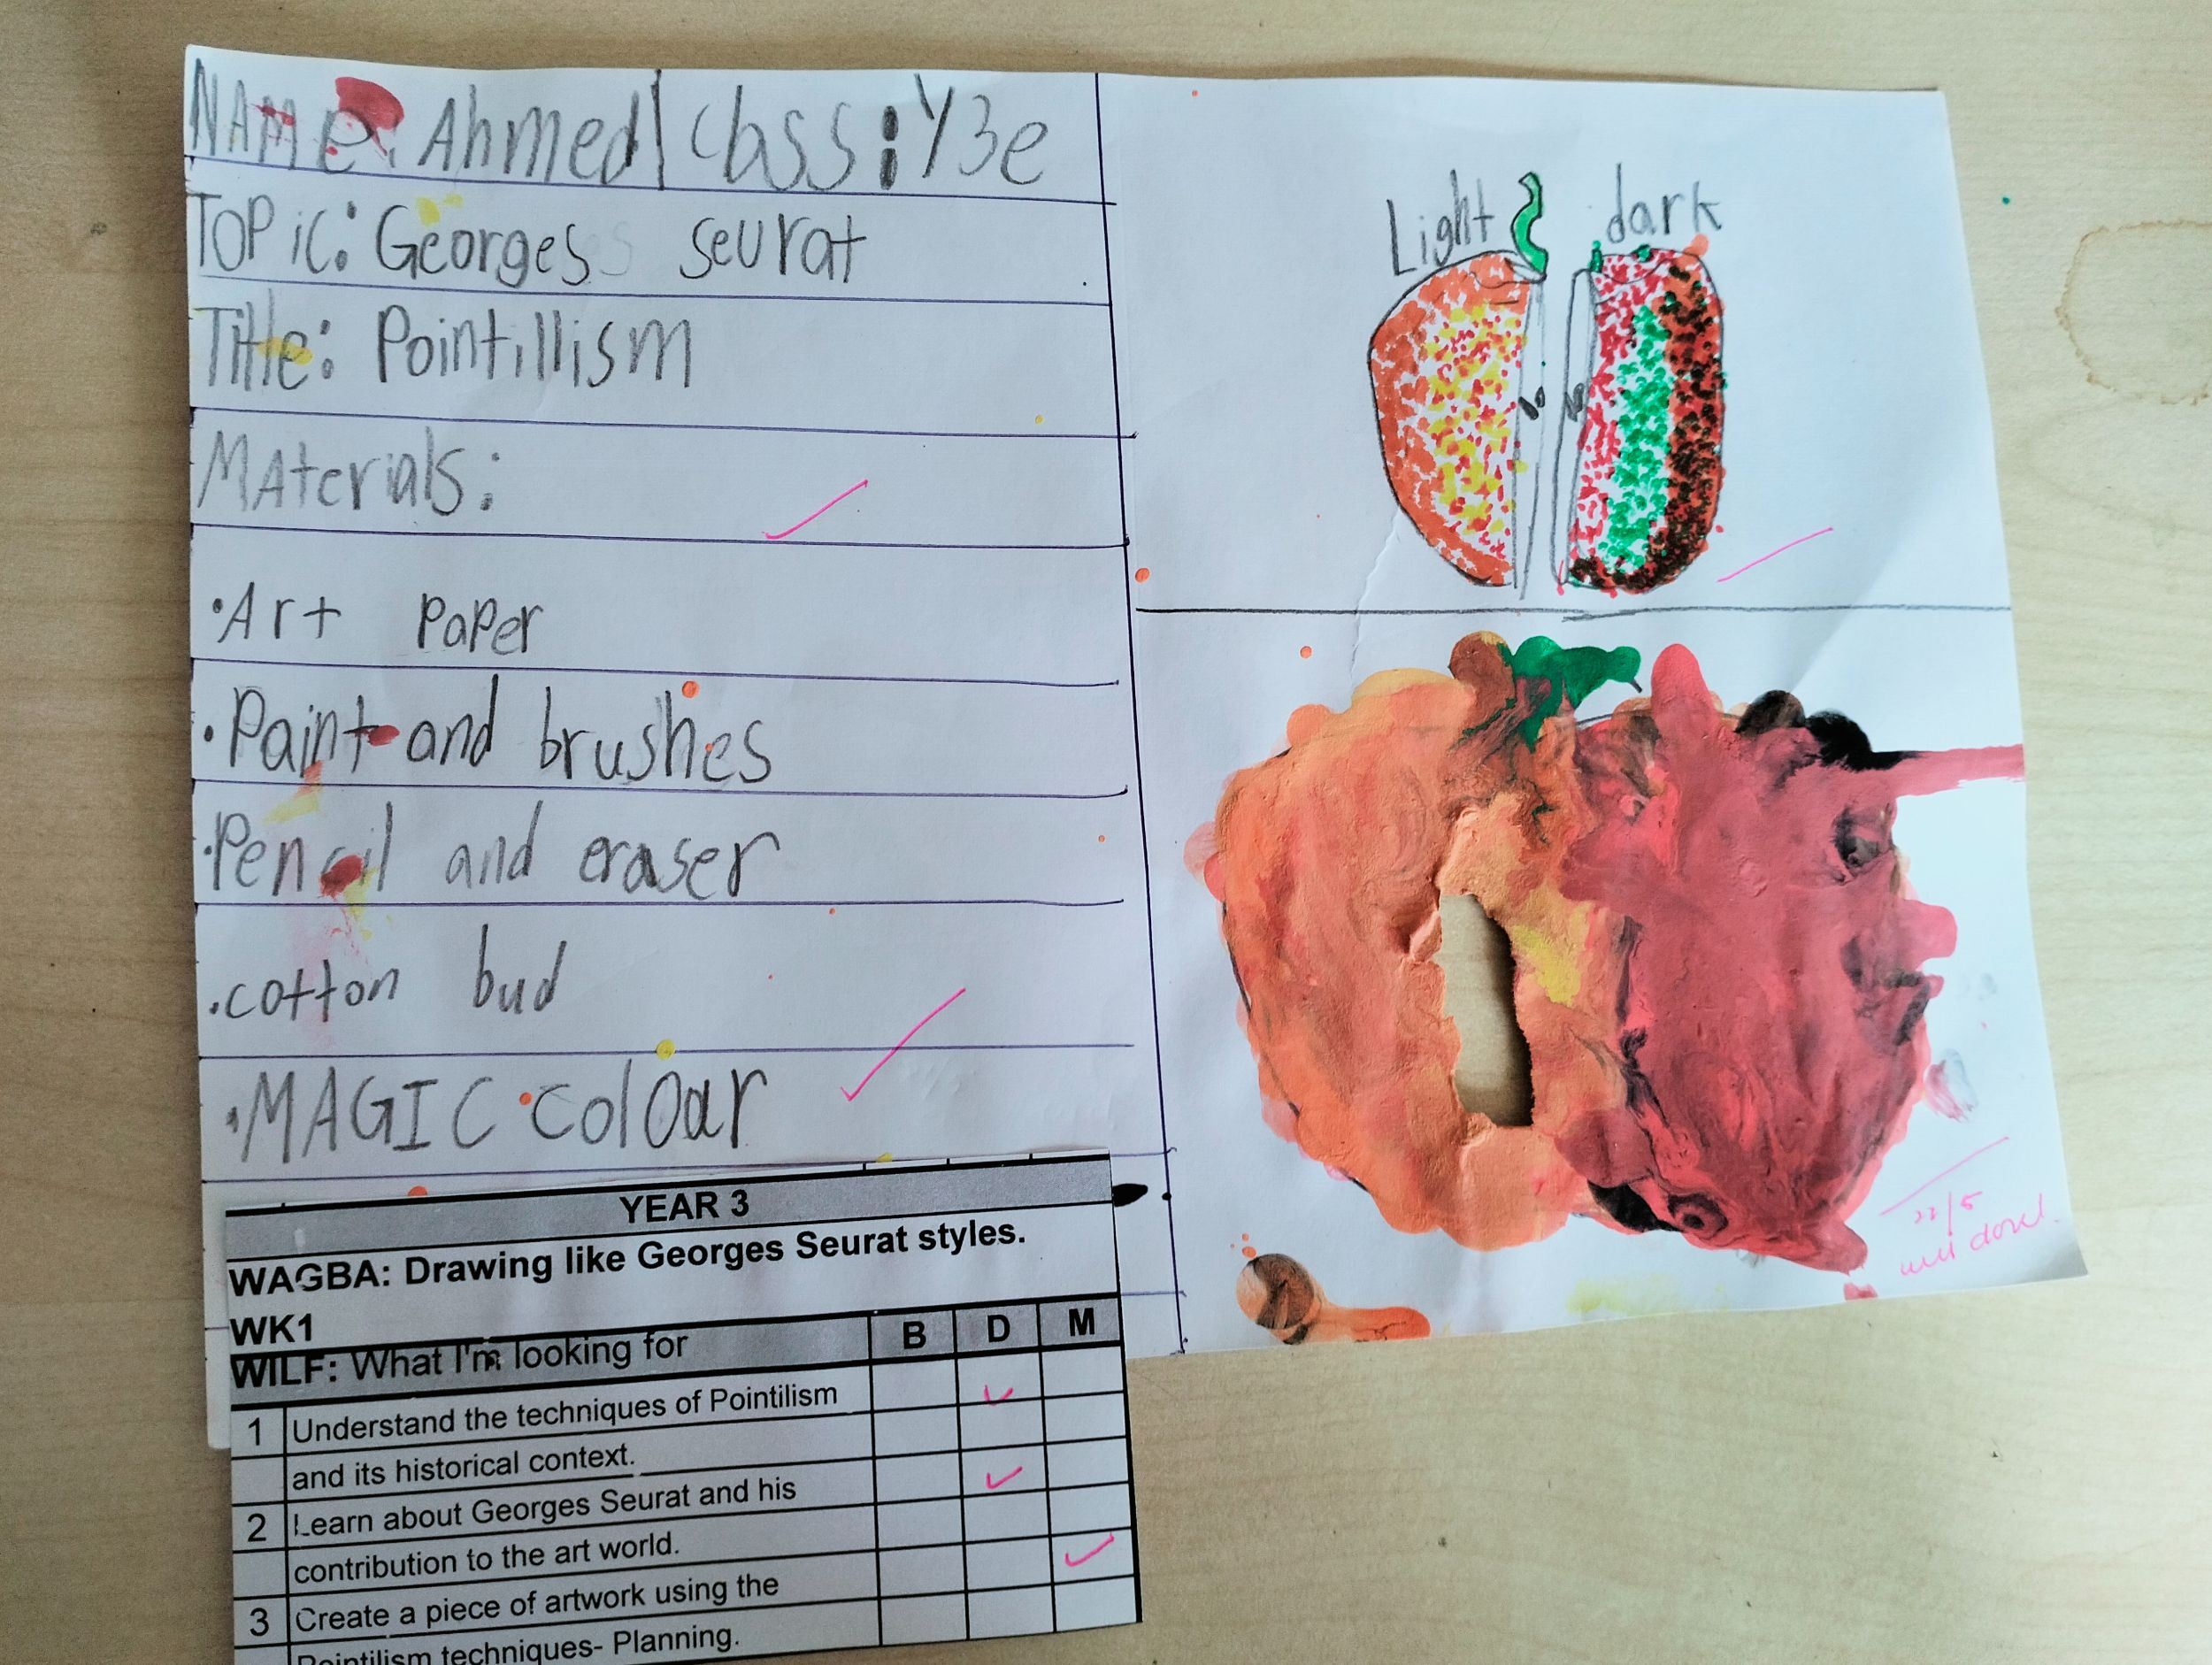 NAMe: Ahmed | Class: Y3e
TOPiC: Georges seurat
Title: Pointillism
MAterials:
• Art paper
• Paint and brushes
• Pencil and eraser
• cotton bud
• MAGIC coloar
Light dark
22/5
YEAR 3
WAGBA: Drawing like Georges Seurat styles.
WK1
WILF: What I'm looking for B D M
1 Understand the techniques of Pointilism
and its historical context.
2 Learn about Georges Seurat and his
contribution to the art world.
3 Create a piece of artwork using the
Pointilism techniques- Planning.